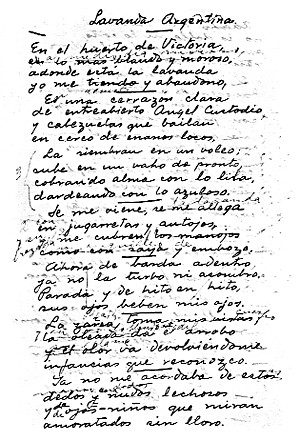 Lavanda Argentina.
En el huerto de Victoria,
en lo más blando y moroso,
adonde está la lavanda
yo me tiendo y abandono,
Es una cerrazón clara
de entreabierto Angel Custodio
y cabezuelas que bailan
en cerco de enanos locos.
La siembran en un voleo;
sube en un vaho de pronto,
cobrando alma con lo lila,
dardeando con lo azuloso.
Se me viene, se me allega
en jugarretas y antojos,
y me cubren los manojos
como con embozo.
Ahora de banda adentro,
ya no la turbo ni asombro.
Parada y de hito en hito,
sus ojos beben mis ojos.
La toma mis
la oleada del arrobo
y el olor va devolviéndome
infancias que reconozco.
Ya no me acordaba de estos
dedos y nudos lechosos
y ojos-niños que miran
amoratados sin lloro.